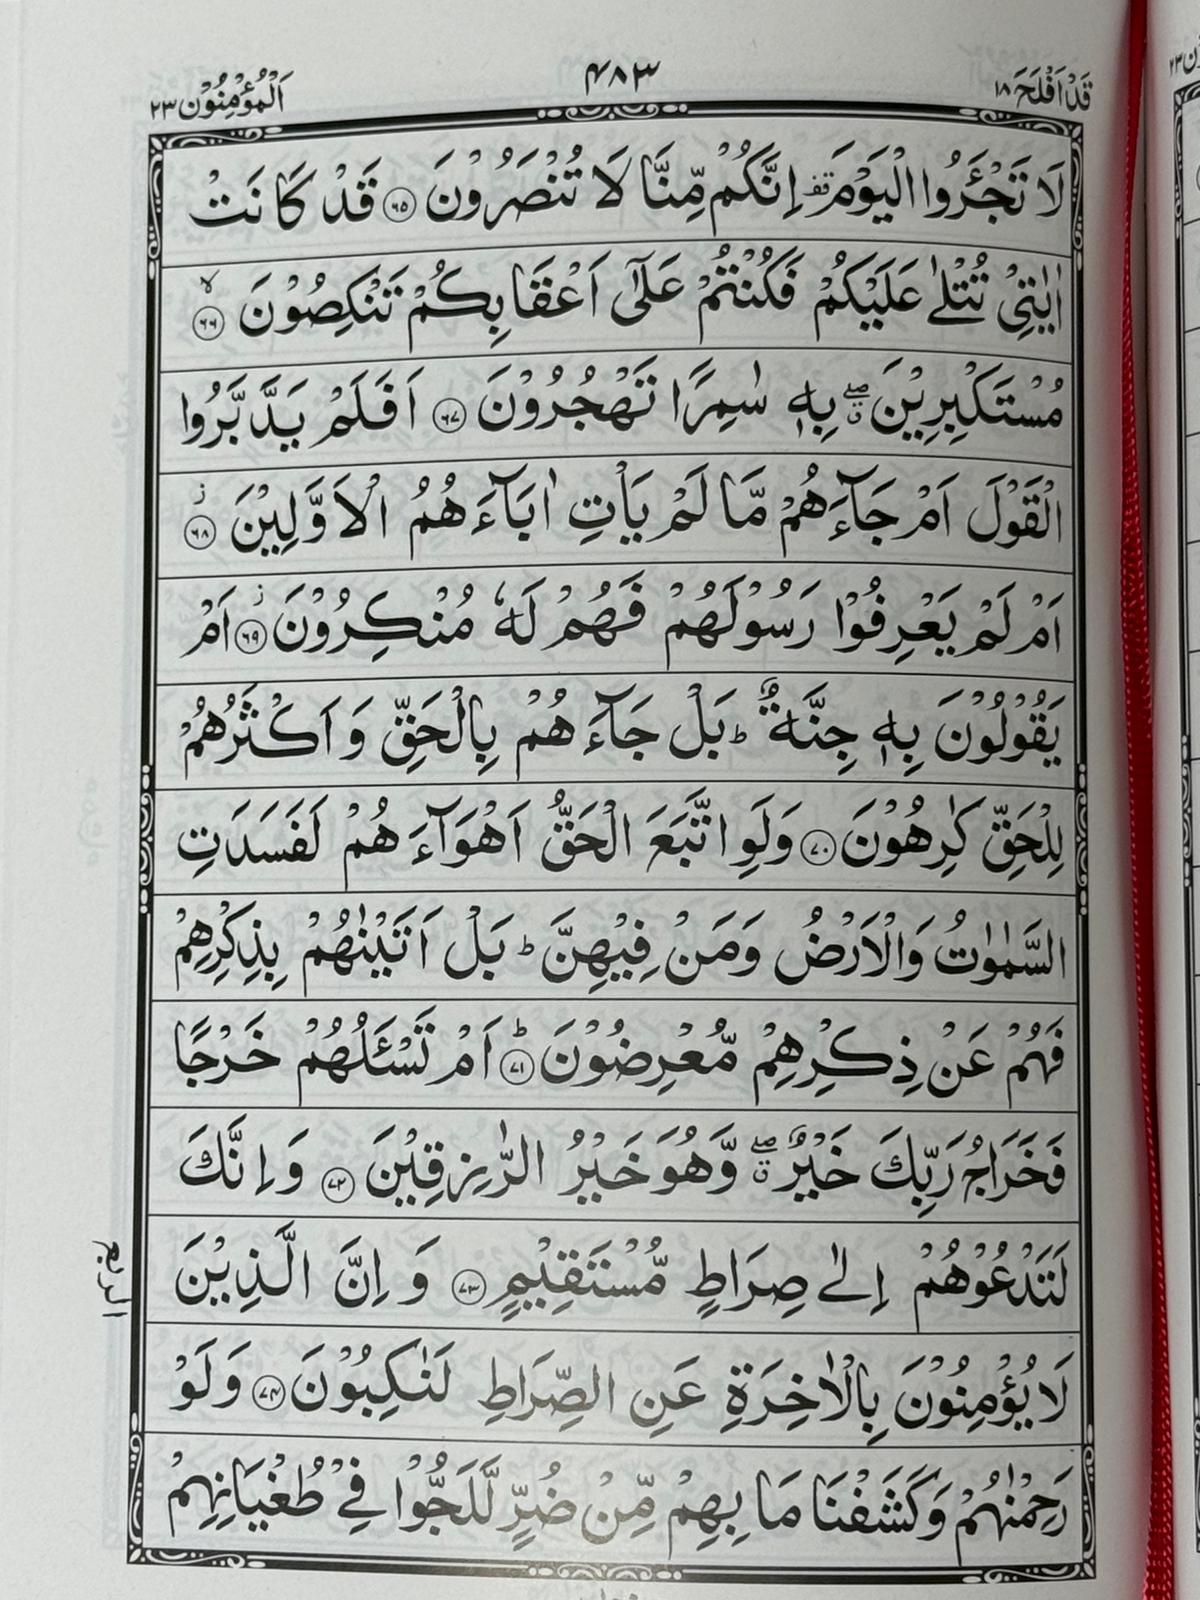 قَدْ اَفْلَحَ ١٨
۴۸۳
اَلْمُؤْمِنُوْن ٢٣
لَا تَجْـَٔرُوا الْيَوْمَ ۫ اِنَّكُمْ مِّنَّا لَا تُنْصَرُوْنَ ۝۶۵ قَدْ كَانَتْ
اٰيٰتِيْ تُتْلٰى عَلَيْكُمْ فَكُنْتُمْ عَلٰٓى اَعْقَابِكُمْ تَنْكِصُوْنَ ۝۶۶ۙ
مُسْتَكْبِرِيْنَ ۖۗ بِهٖ سٰمِرًا تَهْجُرُوْنَ ۝۶۷ اَفَلَمْ يَدَّبَّرُوا
الْقَوْلَ اَمْ جَآءَهُمْ مَّا لَمْ يَاْتِ اٰبَآءَهُمُ الْاَوَّلِيْنَ ۝۶۸ؗ
اَمْ لَمْ يَعْرِفُوْا رَسُوْلَهُمْ فَهُمْ لَهٗ مُنْكِرُوْنَ ۝۶۹ؗ اَمْ
يَقُوْلُوْنَ بِهٖ جِنَّةٌ ؕ بَلْ جَآءَهُمْ بِالْحَقِّ وَاَكْثَرُهُمْ
لِلْحَقِّ كٰرِهُوْنَ ۝۷۰ وَلَوِ اتَّبَعَ الْحَقُّ اَهْوَآءَهُمْ لَفَسَدَتِ
السَّمٰوٰتُ وَالْاَرْضُ وَمَنْ فِيْهِنَّ ؕ بَلْ اَتَيْنٰهُمْ بِذِكْرِهِمْ
فَهُمْ عَنْ ذِكْرِهِمْ مُّعْرِضُوْنَ ۝۷۱ؕ اَمْ تَسْـَٔلُهُمْ خَرْجًا
فَخَرَاجُ رَبِّكَ خَيْرٌ ۖۗ وَّهُوَ خَيْرُ الرّٰزِقِيْنَ ۝۷۲ وَاِنَّكَ
لَتَدْعُوْهُمْ اِلٰى صِرَاطٍ مُّسْتَقِيْمٍ ۝۷۳ وَاِنَّ الَّذِيْنَ
الربع
لَا يُؤْمِنُوْنَ بِالْاٰخِرَةِ عَنِ الصِّرَاطِ لَنٰكِبُوْنَ ۝۷۴ وَلَوْ
رَحِمْنٰهُمْ وَكَشَفْنَا مَا بِهِمْ مِّنْ ضُرٍّ لَّلَجُّوْا فِيْ طُغْيَانِهِمْ